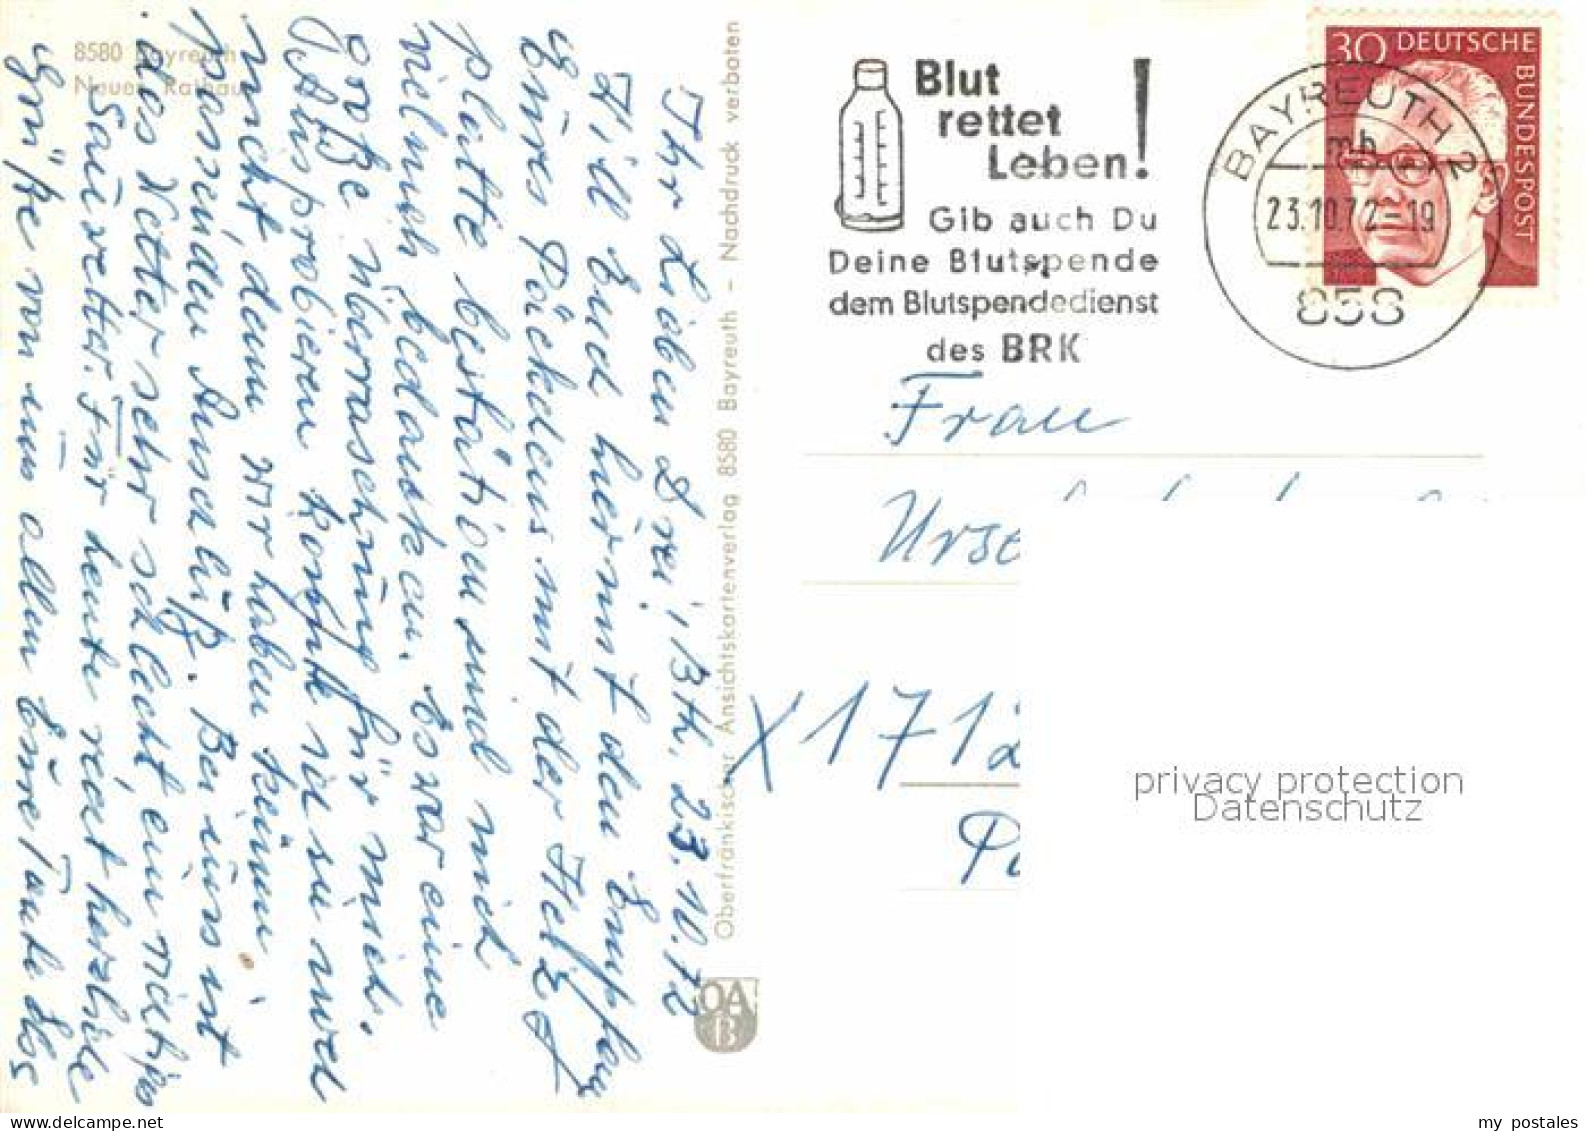 8580 Bayreuth
Neues Rathaus
Ihr Lieben Drei! Bth, 23.10.72
Will Euch hiermit den Empfang
Eures Päckchens mit der Heiz
platte bestätigen und mich
vielmals bedanken. Es war eine
große Überraschung für mich.
Ausprobieren konnte ich sie noch
nicht, denn wir haben keinen
passenden Anschluß. Bei uns ist
das Wetter sehr schlecht, ein richtiges
Sauwetter. Für heute recht herzliche
Grüße von uns allen Eure Tante
Oberfränkischer Ansichtskartenverlag 8580 Bayreuth - Nachdruck verboten
OA
B
Blut
rettet
Leben!
Gib auch Du
Deine Blutspende
dem Blutspendedienst
des BRK
BAYREUTH 2
mb
23.10.72-19
858
30 DEUTSCHE
BUNDESPOST
Frau
X 1712
privacy protection
Datenschutz
my postales